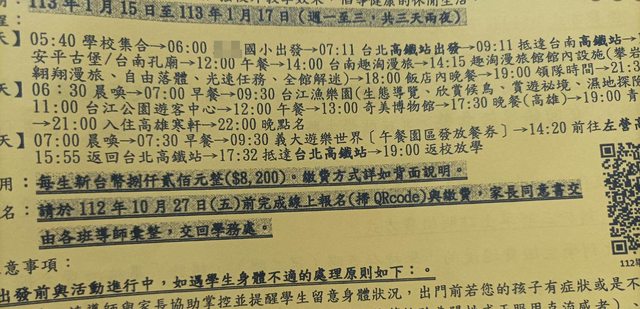 113年1月15日至113年1月17日(週一至三,共三天兩夜)
天】05:40 學校集合→06:00 國小出發→07:11 台北高鐵站出發→09:11 抵達台南高鐵站→
安平古堡/台南孔廟→12:00 午餐→14:00 台南趣淘漫旅→14:15 趣淘漫旅館館內設施(攀岩
翱翔漫旅、自由落體、光速任務、全館解迷)→18:00 飯店內晚餐→19:00 領隊時間→21:3
天】06:30 晨喚→07:00 早餐→09:30 台江漁樂園(生態導覽、欣賞候鳥、賞遊祕境、濕地探
11:00 台江公園遊客中心→12:00 午餐→13:00 奇美博物館→17:30 晚餐(高雄)→19:00 青
→21:00 入住高雄寒軒→22:00 晚點名
天】07:00 晨喚→07:30 早餐→09:30 義大遊樂世界〔午餐園區發放餐券〕→14:20 前往左營高
15:55 返回台北高鐵站→17:32 抵達台北高鐵站→19:00 返校放學
用:每生新台幣捌仟貳佰元整($8,200)。繳費方式詳如背面說明。
名:請於112年10月27日(五)前完成線上報名(掃QRcode)與繳費,家長同意書交
由各班導師彙整,交回學務處。
意事項:
出發前與活動進行中,如遇學生身體不適的處理原則如下:。
導師與家長協助掌控並提醒學生留意身體狀況,出門前若您的孩子有症狀或是不
112